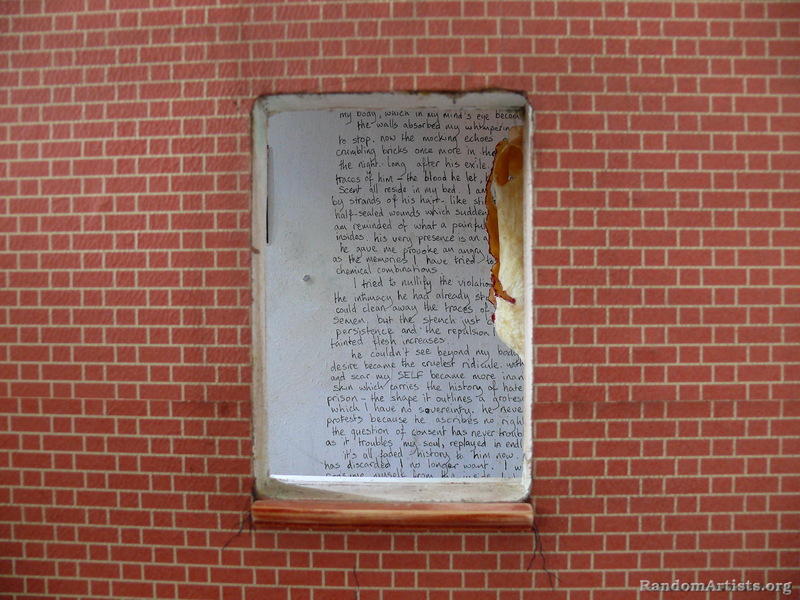 my body, which in my mind's eye
the walls absorbed my
to stop. now the mocking echoes
crumbling bricks once more in
the night. long after his exile.
traces of him – the blood he let,
scent all reside in my bed. I am
by strands of his hair- like
half-sealed wounds which sudden
am reminded of what a painful
insides. his very presence is an
he gave me provoke an angry
as the memories I have tried to
chemical combinations.
I tried to nullify the violation
the intimacy he had already
could clean away the traces of
semen. but the stench just
persistence and the repulsion
tainted flesh increases.
he couldn't see beyond my body
desire became the cruelest ridicule.
and scar my SELF became more
skin which carries the history of hate
prison – the shape it outlines a
which I have no sovereinty. he never
protests because he ascribes no
the question of consent has never
as it troubles my soul, replayed in
it's all faded history to him now.
has discarded I no longer want. I
myself from the inside
RandomArtists.org